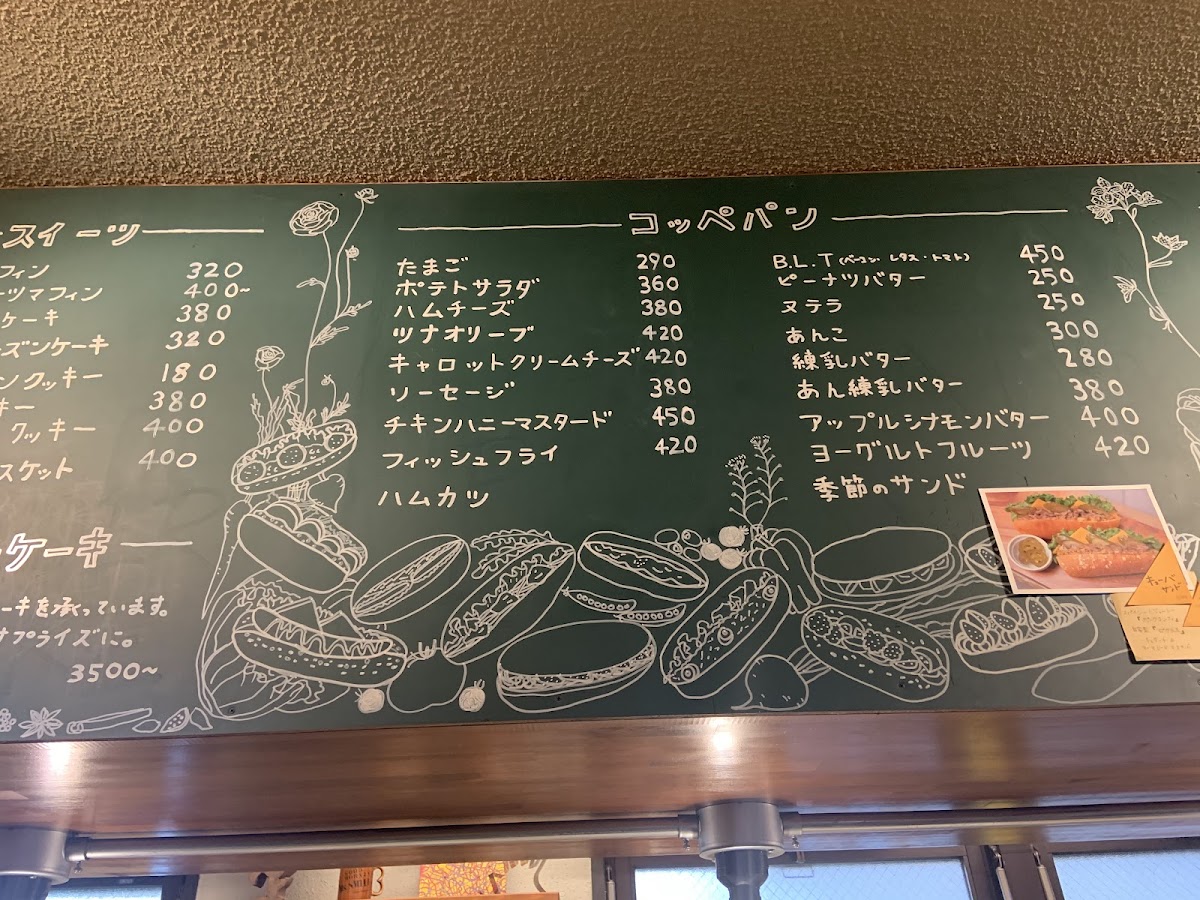 スイーツ
フィン 320
ーツマフィン 400~
ケーキ 380
ーズンケーキ 320
ンクッキー 180
キー 380
クッキー 400
スケット 400
ケーキ
ーキを承っています。
サプライズに。
3500~
コッペパン
たまご 290
ポテトサラダ 360
ハムチーズ 380
ツナオリーブ 420
キャロットクリームチーズ 420
ソーセージ 380
チキンハニーマスタード 450
フィッシュフライ 420
ハムカツ
B.L.T (ベーコン・レタス・トマト) 450
ピーナツバター 250
ヌテラ 250
あんこ 300
練乳バター 280
あん練乳バター 380
アップルシナモンバター 400
ヨーグルトフルーツ 420
季節のサンド
キューバサンド